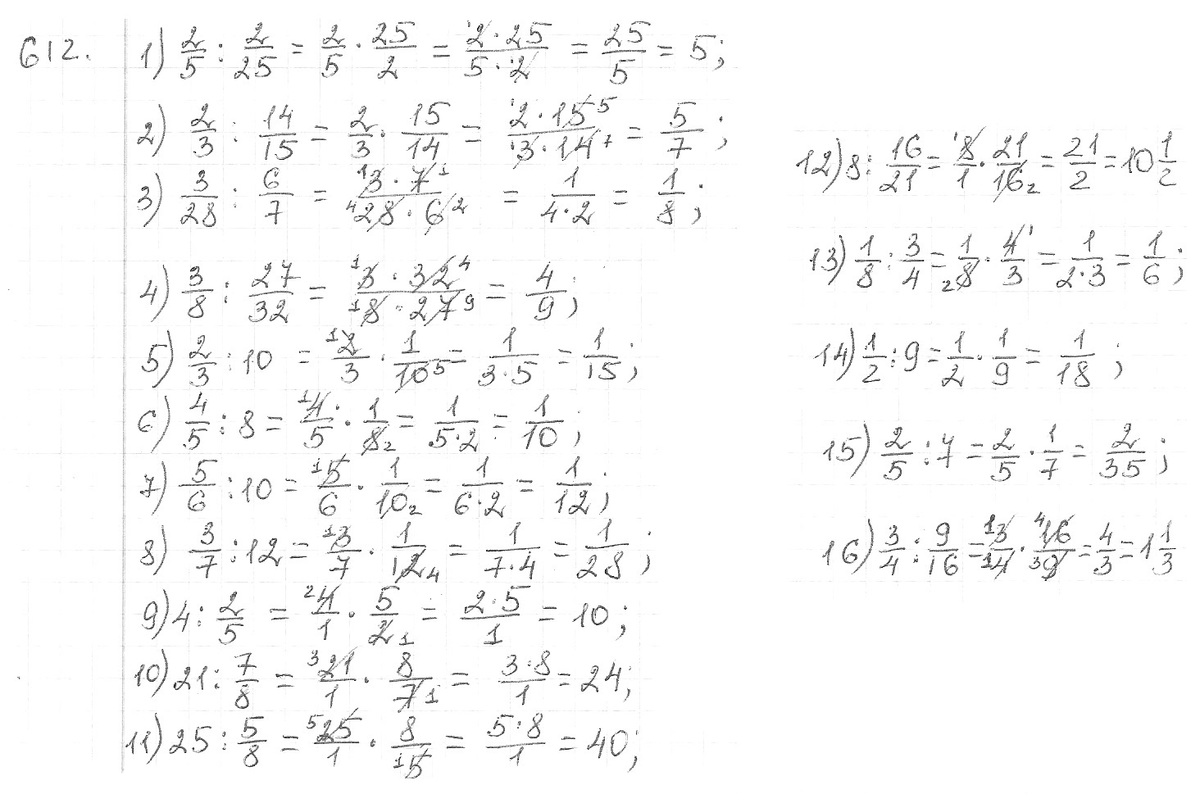 612. 1) 2/5 : 2/25 = 2/5 · 25/2 = (2 · 25)/(5 · 2) = 25/5 = 5;
2) 2/3 : 14/15 = 2/3 · 15/14 = (2 · 15)/(3 · 14) = 5/7;
3) 3/28 : 6/7 = (3 · 7)/(28 · 6) = 1/(4·2) = 1/8;
4) 3/8 : 27/32 = (3 · 32)/(8 · 27) = 4/9;
5) 2/3 : 10 = 2/3 · 1/10 = 1/(3·5) = 1/15;
6) 4/5 : 8 = 4/5 · 1/8 = 1/(5·2) = 1/10;
7) 5/6 : 10 = 5/6 · 1/10 = 1/(6·2) = 1/12;
8) 3/7 : 12 = 3/7 · 1/12 = 1/(7·4) = 1/28;
9) 4 : 2/5 = 4/1 · 5/2 = (2·5)/1 = 10;
10) 21 : 7/8 = 21/1 · 8/7 = (3·8)/1 = 24;
11) 25 : 5/8 = 25/1 · 8/5 = (5·8)/1 = 40;
12) 8 : 16/21 = 8/1 · 21/16 = 21/2 = 10 1/2
13) 1/8 : 3/4 = 1/8 · 4/3 = 1/(2·3) = 1/6;
14) 1/2 : 9 = 1/2 · 1/9 = 1/18;
15) 2/5 : 7 = 2/5 · 1/7 = 2/35;
16) 3/4 : 9/16 = 3/4 · 16/9 = 4/3 = 1 1/3